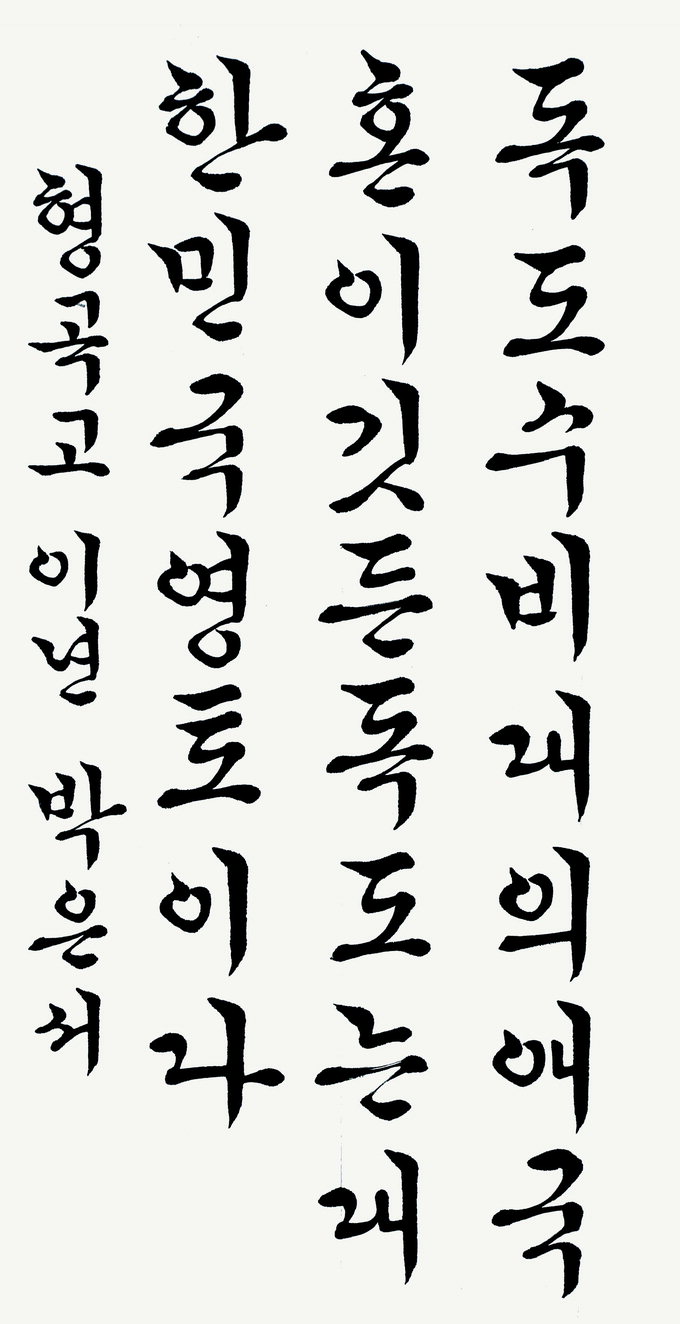 독도수비대의애국
혼이깃든독도는대
한민국영토이다
형곡고 이년 박은서